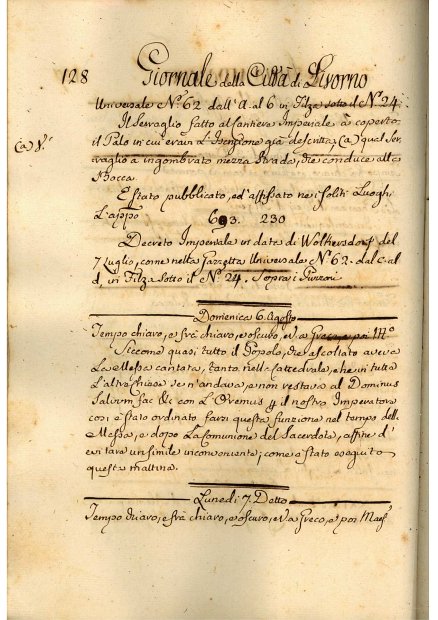 128 Giornale della Città di Livorno
Universale N.º 62 dall' a. al 6 in Filza sotto il N.º 24.
Il Serraglio fatto al Cantiere Imperiale à coperto
(a) V.
il Palo in cui era L'Iscrizione già descritta (a) qual Ser,
raglio à ingombrato mezza Strada, che conduce alla
Bocca.
È stato pubblicato, ed' affissato ne i soliti Luoghi
L'appo 693. 230
Decreto Imperiale in data di Wolkersdorf del
7 Luglio, come nella Gazzetta Universale N.º 62. dal c. al
d, in Filza Sotto il N.º 24. Sopra i
Domenica 6. Agosto
Tempo chiaro, e frà chiaro, e oscuro, e V.a Greco, e poi M.º
Siccome quasi tutto il Popolo, che ascoltato aveva
La Messa cantata, tanto nella Cattedrale, che in tutte
L'altre Chiese se n'andava, e non restava al Dominus
Salvum fac &c con L'Oremus p il nostro Imperatore
così è stato ordinato farsi questa funzione nel tempo della
Messa, e dopo La Comunione del Sacerdote, affine d'
evitare un simile inconveniente; come è stato eseguito
questa mattina.
Lunedì 7 Detto
Tempo chiaro, e frà chiaro, e oscuro, e V.a Greco, e poi Maes.